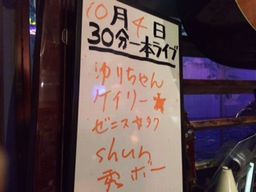 10月4日
30分一本ライブ
ゆりちゃん
ケイリー★
ゼニスキタク
shuh
秀ボー